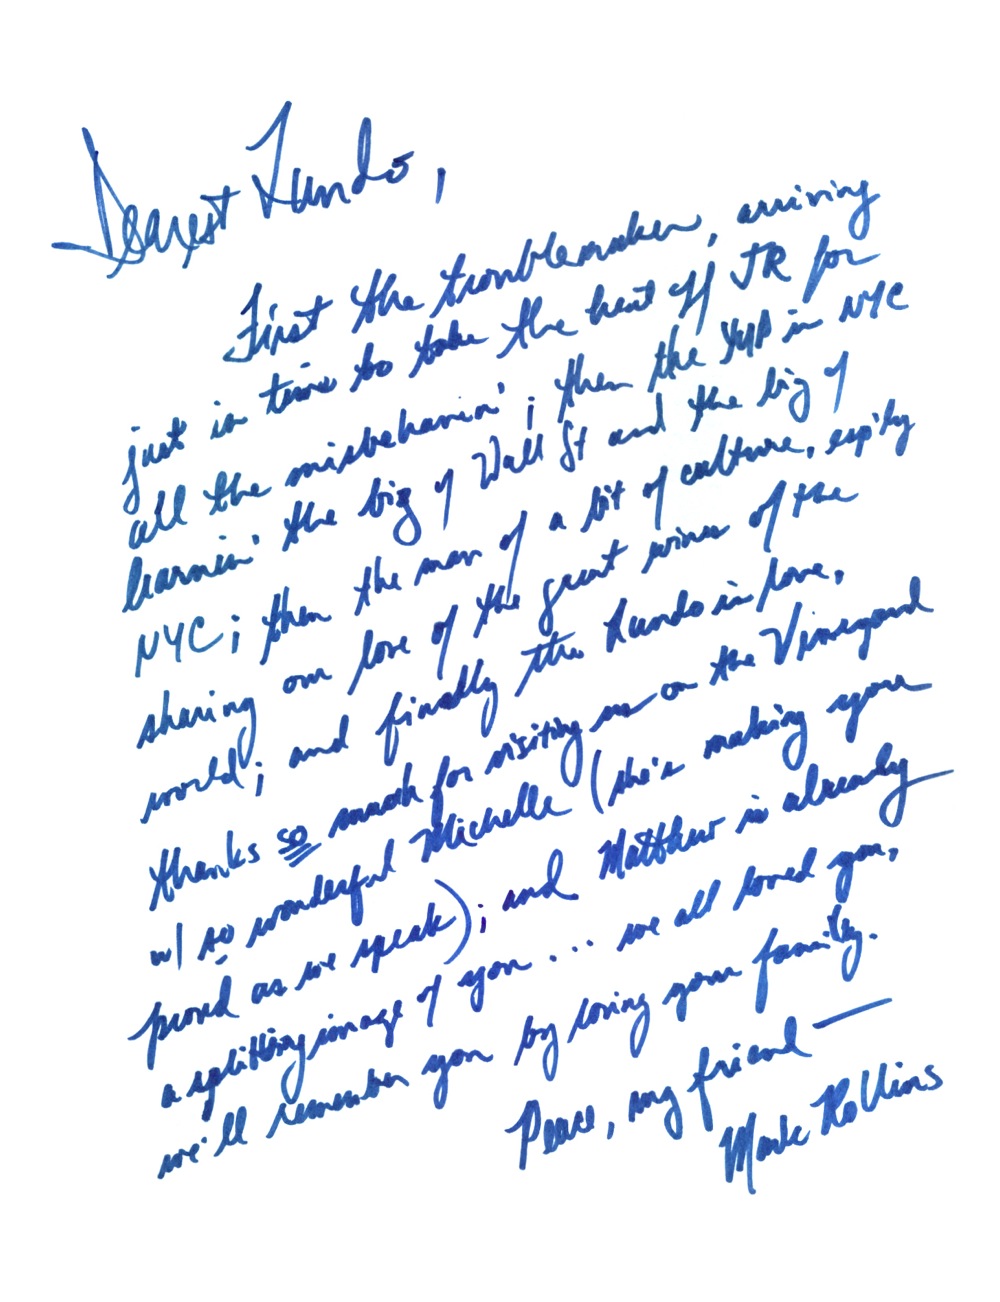 Dearest Lundo,
First the troublemaker, arriving
just in time to take the heat off JR for
all the misbehavin'; then the YUP in NYC
learnin' the biz of Wall St and the biz of
NYC; then the man of a bit of culture, esp'ly
sharing our love of the great wines of the
world; and finally the Lundo in love,
thanks so much for visiting us on the Vineyard
w/ so wonderful Michelle (she's making you
proud as we speak); and Matthew is already
a splitting image of you... we all loved you,
we'll remember you by loving your family.
Peace, my friend —
Mark Rollins